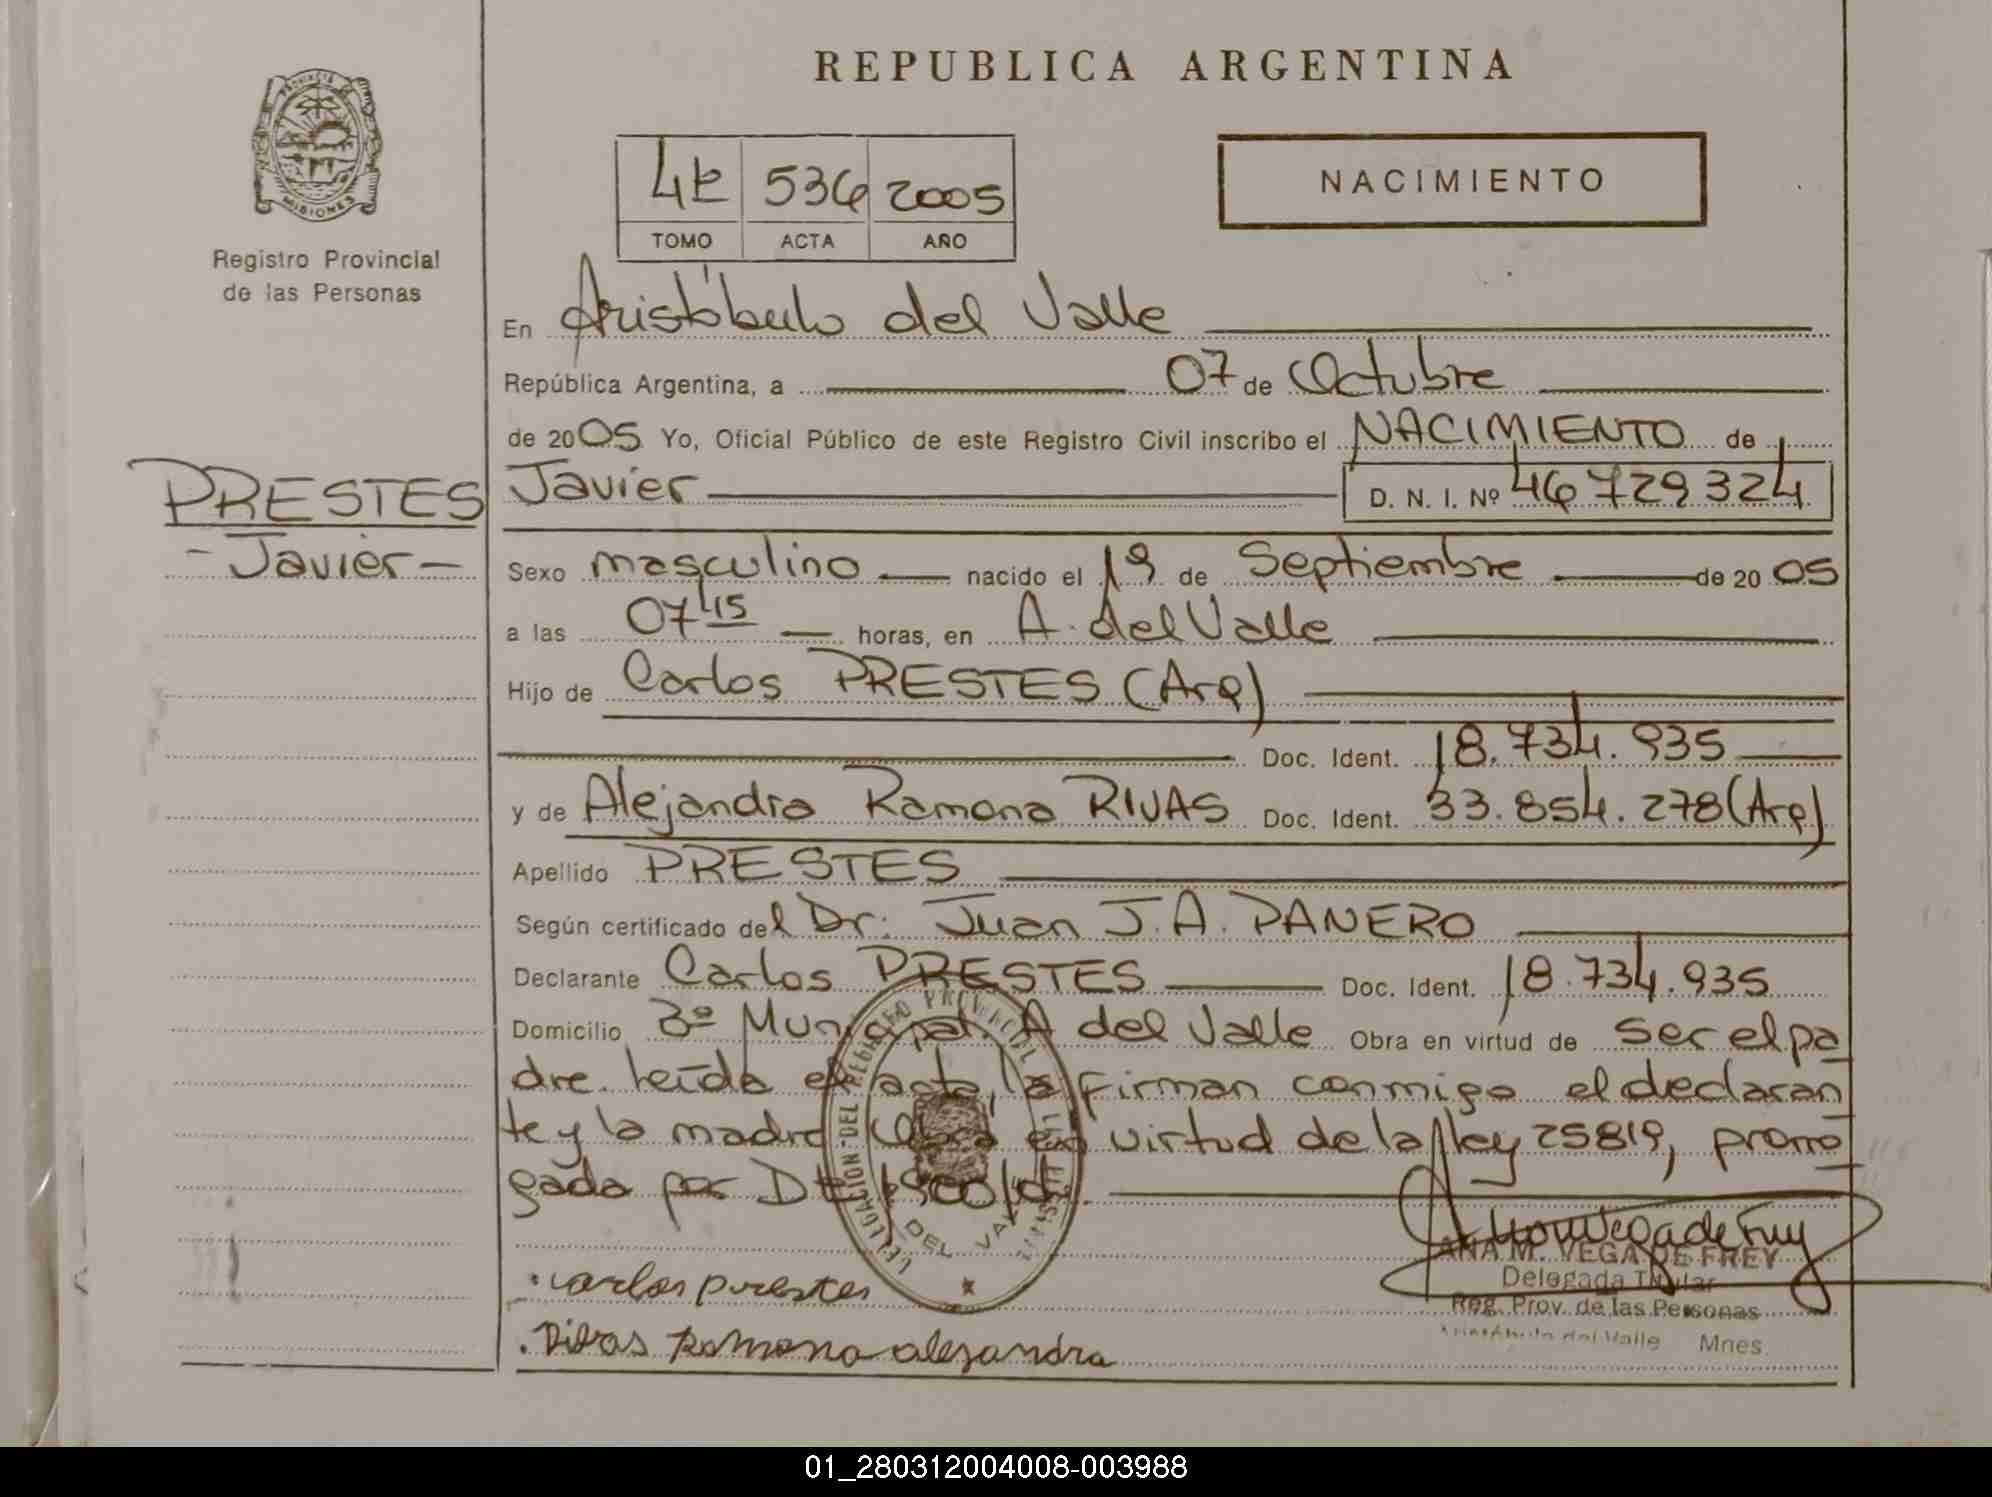 REPUBLICA ARGENTINA
PROVINCIA
MISIONES
Registro Provincial
de las Personas
536 2005
TOMO ACTA AÑO
NACIMIENTO
En Aristóbulo del Valle
República Argentina, a 07 de Octubre
de 2005 Yo, Oficial Público de este Registro Civil inscribo el NACIMIENTO de
PRESTES
- Javier -
Javier D. N. I. Nº 46729324
Sexo masculino nacido el 19 de Septiembre de 2005
a las 07 45 horas, en A. del Valle
Hijo de Carlos PRESTES (Arg)
Doc. Ident. 18.734.935
y de Alejandra Ramona RIVAS Doc. Ident. 33.854.278 (Arg)
Apellido PRESTES
Según certificado del Dr. Juan J.A. PANERO
Declarante Carlos PRESTES Doc. Ident. 18.734.935
Domicilio Bº Municipal. A del Valle Obra en virtud de ser el pa
dre. leída el acta, la firman conmigo el declaran
te y la madre Obra en virtud de la ley 25819, prorro
gada por
DEL VALLE
carlos prestes
Rivas Ramona alejandra
ANA M. VEGA DE FREY
Delegada Titular
Reg. Prov. de las Personas
Aristóbulo del Valle Mnes.
01_280312004008-003988